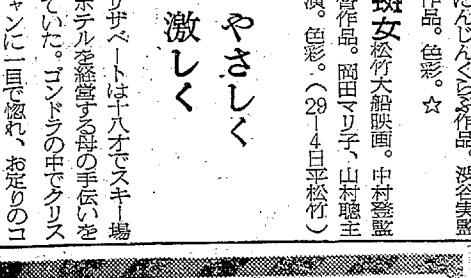 にんじんくらぶ作品。渋谷実監
作品。色彩。☆
斑女 松竹大船映画。中村登監
督作品。岡田マリ子、山村聰主
演。色彩。(29―4日平松竹)
やさしく
激しく
リザベートは十八才でスキー場
ホテルを経営する母の手伝いを
ていた。ゴンドラの中でクリス
ャンに一目で惚れ、お定りのコ